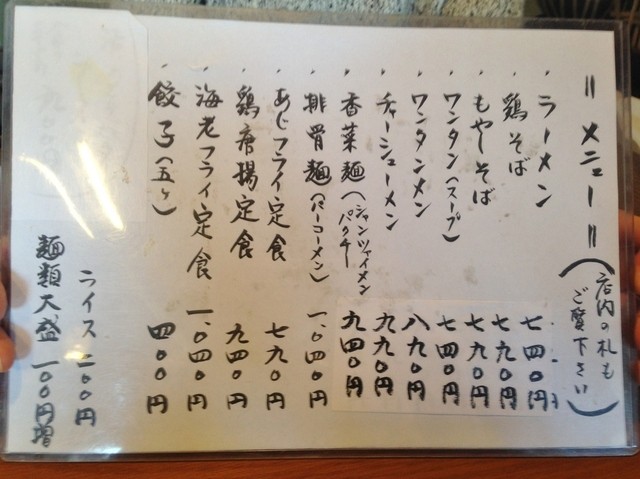 〃メニュー〃
(店内の札も
ご覧下さい)
、ラーメン 七四〇円
、鶏そば 七九〇円
、もやしそば 七九〇円
、ワンタン(スープ) 七四〇円
、ワンタンメン 八九〇円
、チャーシューメン 九九〇円
、香菜麺(シャンツァイメン パクチー) 九四〇円
、排骨麺(パーコーメン) 一、〇四〇円
、あじフライ定食 七九〇円
、鶏唐揚定食 九四〇円
、海老フライ定食 一、〇四〇円
、餃子(五ヶ) 四〇〇円
ライス 二〇〇円
麺類大盛 一〇〇円増